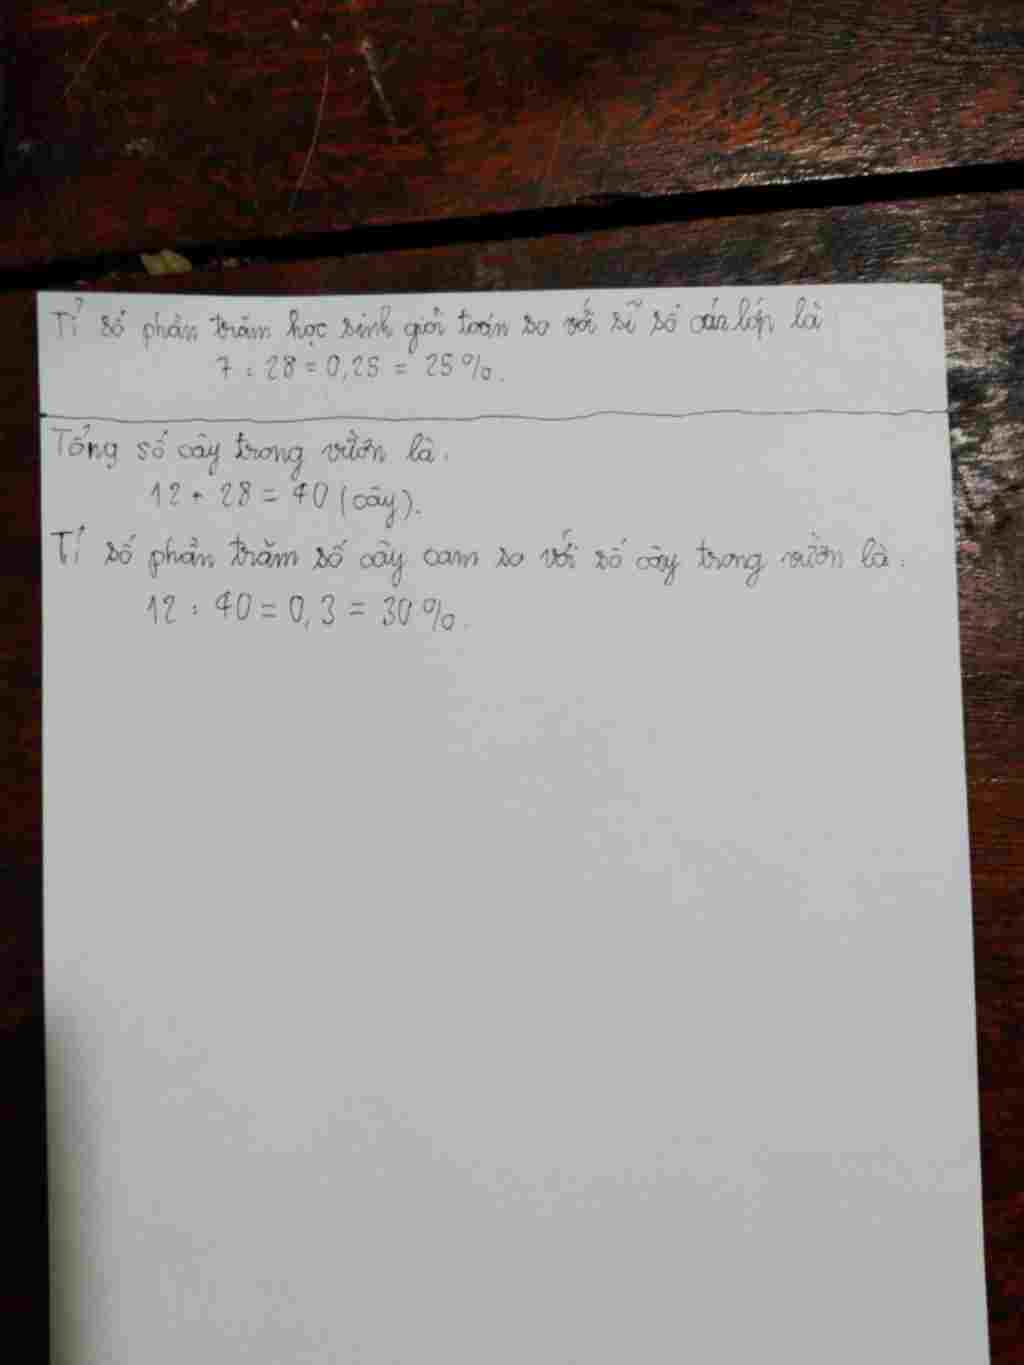 Tỉ số phần trăm học sinh giỏi toán so với sĩ số cả lớp là
7 : 28 = 0,25 = 25%.
Tổng số cây trong vườn là.
12 + 28 = 40 (cây).
Tỉ số phần trăm số cây cam so với số cây trong vườn là:
12 : 40 = 0,3 = 30%.